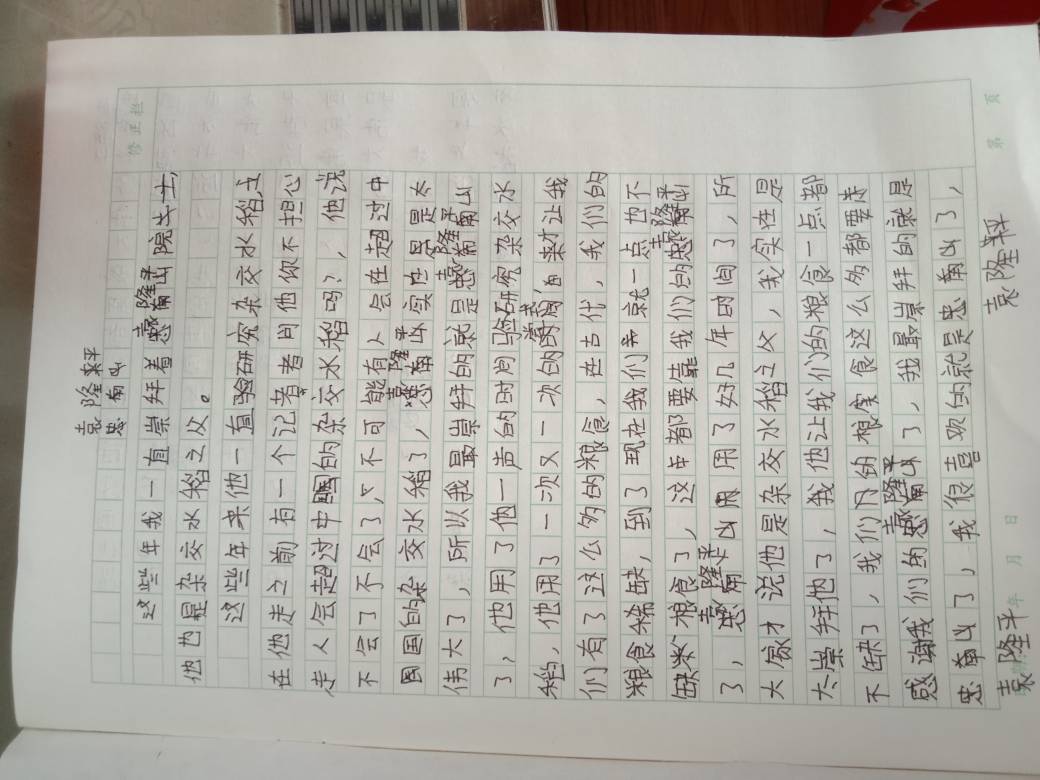 袁隆平
忠南山
这些年我一直崇拜着袁隆平院士,
他也是杂交水稻之父。
这些年来他一直验研究杂交水稻,文
在他走之前有一个记者者问他你不担心
走人会超过中国的杂交水稻吗?,他说
不会了不会了,不可能有人会在超过中
国国的杂交水稻了,袁隆平实在是是太
伟大了,所以我最崇拜的就是袁隆平
了,他用了他一声的时间研究杂交水
稻,他用了一次又一次的的来才让我
们有了这么多的粮食,在古代,我们的
粮食稀缺,到了现在我们就一点也不
缺粮食了,这年都要靠我们的袁隆平
了,袁隆平用了好几年时间了,所
大家才说他是杂交水稻之父,我实在是
太崇拜他了,我他让我们的粮食一点都
不缺了,我们的粮食这么多都要
感谢我们的袁隆平了,我最崇拜的就是
忠南山了,我很喜欢的就是忠南山了,
袁隆平 袁隆平
修正栏
第 页
年 月 日